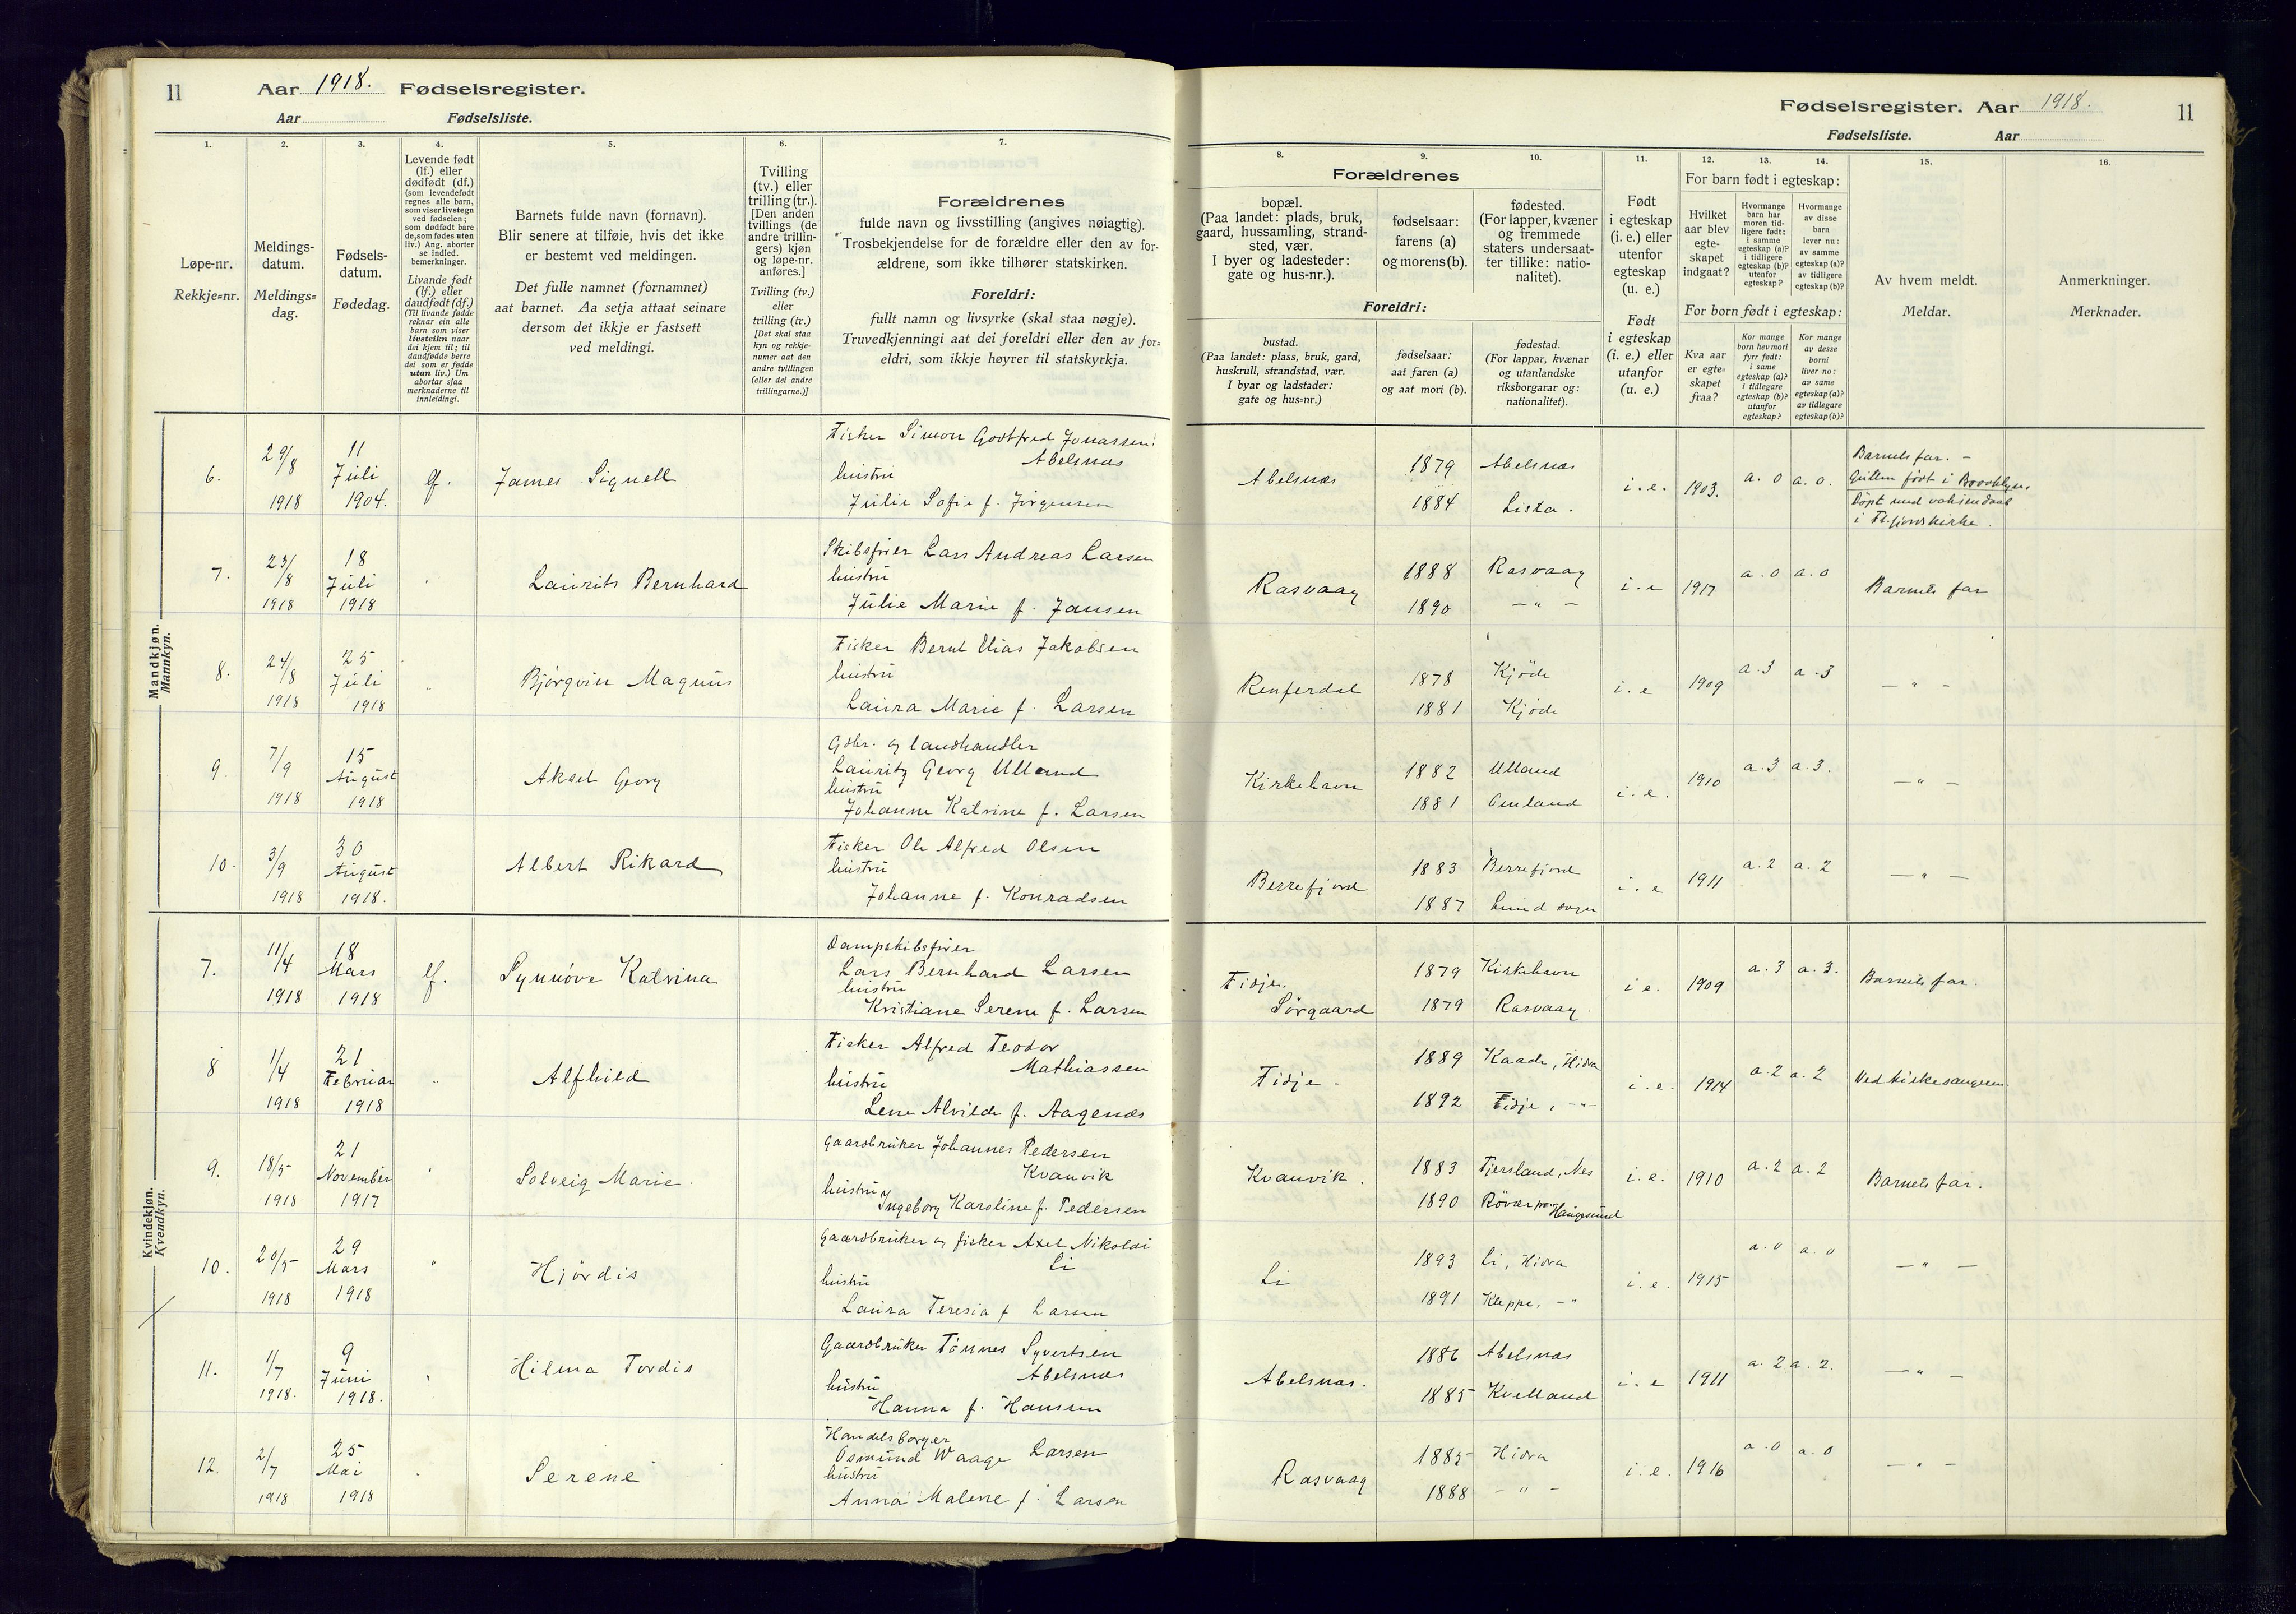 11
Aar 1918. Fødselsregister.
Aar Fødselsliste.
Fødselsregister. Aar 1918.
11
Fødselsliste. Aar
1.
Løpe-nr.
Rekkje=nr.
2.
Meldings-
datum.
Meldings=
dag.
3.
Fødsels-
datum.
Fødedag.
4.
Levende født
(lf.) eller
dødfødt (df.)
(som levendefødt
regnes alle barn,
som viser livstegn
ved fødselen;
som dødfødt bare
de, som fødes uten
liv.) Ang. aborter
se indled.
bemerkninger.
Livande født
(lf.) eller
daudfødt (df.)
(Til livande fødde
reknar ein alle
barn som viser
livsteikn naar
dei kjem til; til
daudfødde berre
dei som er fødde
utan liv.) Um
abortar sjaa
merknaderne til
innleidingi.
5.
Barnets fulde navn (fornavn).
Blir senere at tilføie, hvis det ikke
er bestemt ved meldingen.
Det fulle namnet (fornamnet)
aat barnet. Aa setja attaat seinare
dersom det ikkje er fastsett
ved meldingi.
6.
Tvilling
(tv.) eller
trilling (tr.).
[Den anden
tvillings (de
andre trillin-
gers) kjøn
og løpe-nr.
anføres.]
Tvilling (tv.)
eller
trilling (tr.)
[Det skal staa
kyn og rekkje-
numer aat den
andre tvillingen
(eller dei andre
trillingarne.)]
7.
Forældrenes
fulde navn og livsstilling (angives nøiagtig).
Trosbekjendelse for de forældre eller den av for-
ældrene, som ikke tilhører statskirken.
Foreldri:
fullt namn og livsyrke (skal staa nøgje).
Truvedkjenningi aat dei foreldri eller den av for=
eldri, som ikkje høyrer til statskyrkja.
Forældrenes
8.
bopæl.
(Paa landet: plads, bruk,
gaard, hussamling, strand-
sted, vær.
I byer og ladesteder:
gate og hus-nr.).
9.
fødselsaar:
farens (a)
og morens (b).
10.
fødested.
(For lapper, kvæner
og fremmede
staters undersaat-
ter tillike: natio-
nalitet).
Foreldri:
bustad.
(Paa landet: plass, bruk, gard,
huskrull, strandstad, vær.
I byar og ladstader:
gate og hus=nr.)
fødselsaar:
aat faren (a)
og aat mori (b).
fødestad.
(For lappar, kvænar
og utanlandske
riksborgarar og:
nationalitet).
11.
Født
i egteskap
(i. e.) eller
utenfor
egteskap
(u. e.)
Født
i egteskap
(i. e.) eller
utanfor
(u. e.)
12. 13. 14.
For barn født i egteskap:
Hvilket
aar blev
egte-
skapet
indgaat?
Hvormange
barn har
moren tid-
ligere født:
i samme
egteskap (a)?
i tidligere
egteskap (b)?
utenfor
egteskap?
Hvormange
av disse
barn
lever nu:
av samme
egteskap (a)?
av tidligere
egteskap (b)?
For born født i egteskap:
Kva aar
er egte=
skapet
fraa?
Kor mange
born hev mori
fyrr født:
i same
egteskap (a)?
i tidlegare
egteskap (b)?
utanfor
egteskap?
Kor mange
av desse
borni
liver no:
av same
egteskap (a)?
av tidlegare
egteskap (b)?
15.
Av hvem meldt.
Meldar.
16.
Anmerkninger.
Merknader.
Mandkjøn.
Mannkyn.
6.
29/8
1918
11
Juli
1904.
James Signell
Fisker Simon Godtfred Jonassen
Abelsnæs
hustru
Julie Sofie f. Jørgensen
Abelsnæs
1879
1884
Abelsnæs
Lista.
i. e.
1903.
a. 0 a. 0.
Barnets far. -
Gutten født i Brooklyn.
Døpt med
7.
23/8
1918
18
Juli
1918
Laurits Bernhard
Skibsfører Lars Andreas Larsen
hustru
Julie Marie f. Jansen
Rasvaag
1888
1890
Rasvaag
— " —
i. e
1917
a. 0 a. 0
Barnets far
8.
24/8
1918
25
Juli
1918
"
Bjørgvin Magnus
Fisker Bernt Elias Jakobsen
hustru
Laura Marie f. Larsen
1878
1881
Kjöde
Kjöde
i. e
1909
a. 3 a. 3
— " —
9.
7/9
1918
15
August
1918
Aksel Georg
Gdbr. og landhandler
Lauritz Georg Ulland
hustru
Johanne Katrine f. Larsen
Kirkehavn
1882
1881
Ulland
Omland
i. e.
1910
a. 3 a. 3.
— " —
10.
3/9
1918
30
August
1918.
Albert Rikard
Fisker Ole Alfred Olsen
hustru
Johanne f. Konradsen
Berrefjord
1883
1887
Berrefjord
Lund sogn
i. e
1911
a. 2 a. 2
— " —
Kvindekjøn.
Kvendkyn.
7.
11/4
1918
18
Mars
1918
lf.
Synnöve Katrina
Dampskibsfører
Lars Bernhard Larsen
hustru
Kristiane Serene f. Larsen
Fidje.
Sørgaard
1879
1879
Kirkehavn
Rasvaag.
i e.
1909
a. 3 a. 3.
Barnets far.
8
1/4
1918
21
Februar
1918
"
Alfhild
Fisker Alfred Teodor
Mathiassen
hustru
Lene Alvilde f. Aagenæs
Fidje.
1889
1892
Kaade, Hidra
Fidje, -"-
i. e.
1914
a. 2 a. 2
Ved kirkesangeren.
9.
18/5
1918
21
November
1917
"
Solveig Marie.
Gaardbruker Johannes Pedersen
Kvanvik
hustru
Ingeborg Karoline f. Pedersen
Kvanvik.
1883
1890
Tjersland, Nes
Röver pr. Haugesund
i. e.
1910
a. 2 a. 2
Barnets far.
10.
20/5
1918
29
Mars
1918
"
Hjördis
Gaardbruker og fisker Axel Nikolai
Li
hustru
Laura Teresia f Larsen
Li
1893
1891
Li, Hidra
Kleppe, -"
i. e.
1915
a. 0 a. 0
— " —
11.
1/7
1918.
9
Juni
1918.
"
Hilma Tordis
Gaardbruker Tönnes Syvertsen
Abelsnæs
hustru
Hanna f. Hanssen
Abelsnæs.
1886
1885
Abelsnæs
Kvelland
i. e
1911
a. 2 a. 2.
— " —
12.
2/7
1918
25
Mai
1918
Serene
Handelsborger
Osmund Waage Larsen
hustru
Anna Malene f. Larsen
Rasvaag
1885
1888
Hidra
- " -
i. e.
1916
a. 0 a. 0
— " —